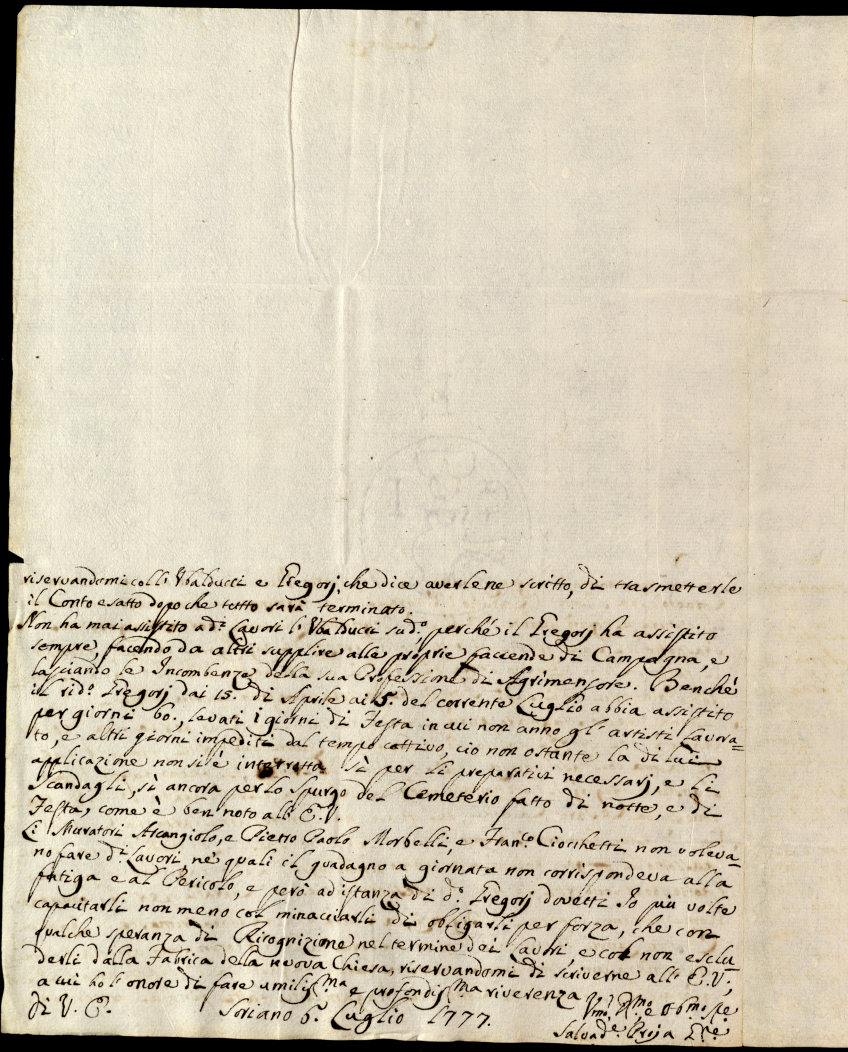 riservandomi coll' Vbalducci e Gregorj, che dice averlene scritto, di trasmetterle
il Conto esatto dopo che tutto sarà terminato.
Non ha mai assistito a d.i Lavori l' Vbalducci sud.o perché il Gregorj ha assistito
sempre, facendo da altri supplire alle proprie faccende di Campagna, e
lasciando le Incombenze della sua Professione di Agrimensore. Benché
il rid.o Gregorj dai 15. di Aprile ai 5. del corrente Luglio abbia assistito
per giorni 60., levati i giorni di Festa in cui non anno gl' artisti Lavora=
to, e altri giorni impediti dal tempo cattivo, cio non ostante la di lui
applicazione non si è interrotta sì per li preparativi necessarj, e li
Scandagli, sì ancora per lo Spurgo del Cemeterio fatto di notte, e di
Festa, come è ben noto all' E.V.
Li Muratori Arcangiolo, e Pietro Paolo Morbelli, e Fran.co Ciocchetti non voleva=
no fare d.i Lavori, ne quali il guadagno a giornata non corrispondeva alla
fatiga e al Pericolo, e però ad istanza di d.o Gregorj dovetti Io più volte
capacitarli non meno col minacciarli di obligarli per forza, che con
qualche speranza di Ricognizione nel termine dei Lavori, e col non esclu
derli dalla Fabrica della nuova Chiesa, riservandomi di scriverne all' E.V.,
a cui ho l' onore di fare umiliss.ma e profondiss.ma riverenza
Di V. E. Soriano 6. Luglio 1777.
Vmo. e Obmo. Sre
Salvad.e Proja